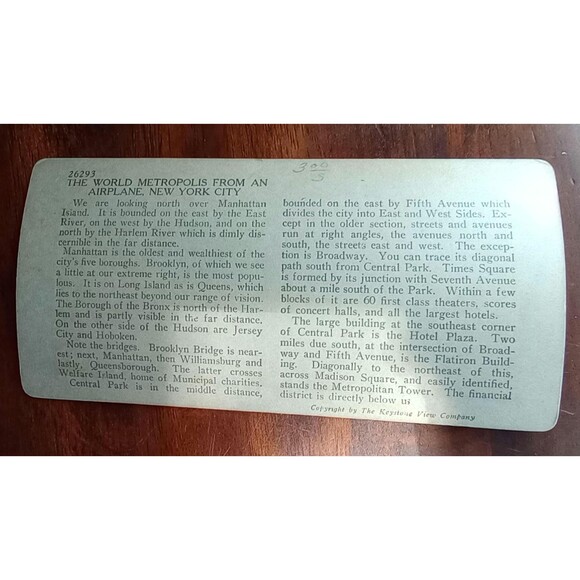 26293
THE WORLD METROPOLIS FROM AN
AIRPLANE, NEW YORK CITY
We are looking north over Manhattan
Island. It is bounded on the east by the East
River, on the west by the Hudson, and on the
north by the Harlem River which is dimly dis-
cernible in the far distance.
Manhattan is the oldest and wealthiest of the
city's five boroughs. Brooklyn, of which we see
a little at our extreme right, is the most popu-
lous. It is on Long Island as is Queens, which
lies to the northeast beyond our range of vision.
The Borough of the Bronx is north of the Har-
lem and is partly visible in the far distance.
On the other side of the Hudson are Jersey
City and Hoboken.
Note the bridges. Brooklyn Bridge is near-
est; next, Manhattan, then Williamsburg and
lastly, Queensborough. The latter crosses
Welfare Island, home of Municipal charities.
Central Park is in the middle distance,
bounded on the east by Fifth Avenue which
divides the city into East and West Sides. Ex-
cept in the older section, streets and avenues
run at right angles, the avenues north and
south, the streets east and west. The excep-
tion is Broadway. You can trace its diagonal
path south from Central Park. Times Square
is formed by its junction with Seventh Avenue
about a mile south of the Park. Within a few
blocks of it are 60 first class theaters, scores
of concert halls, and all the largest hotels.
The large building at the southeast corner
of Central Park is the Hotel Plaza. Two
miles due south, at the intersection of Broad-
way and Fifth Avenue, is the Flatiron Build-
ing. Diagonally to the northeast of this,
across Madison Square, and easily identified,
stands the Metropolitan Tower. The financial
district is directly below us
Copyright by The Keystone View Company